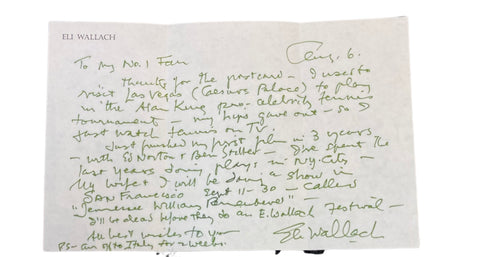 ELI WALLACH
Aug. 6.
To My No. 1 Fan
Thanks for the postcard - I used to
visit Las Vegas (Caesars Palace) to play
in the Alan King pro-celebrity tennis
tournament - my hips gave out - so I
just watch tennis on TV.
Just finished my first film in 3 years
- with Ed Norton + Ben Stiller - I've spent the
last years doing plays in N.Y. City -
My wife + I will be doing a show in
SAN FRANCISCO Sept 11 - 30 - called
"Tennessee Williams Remembered" -
I'll be dead before they do an E. Wallach Festival -
All best wishes to you
Eli Wallach
PS - am off to Italy for 2 weeks.